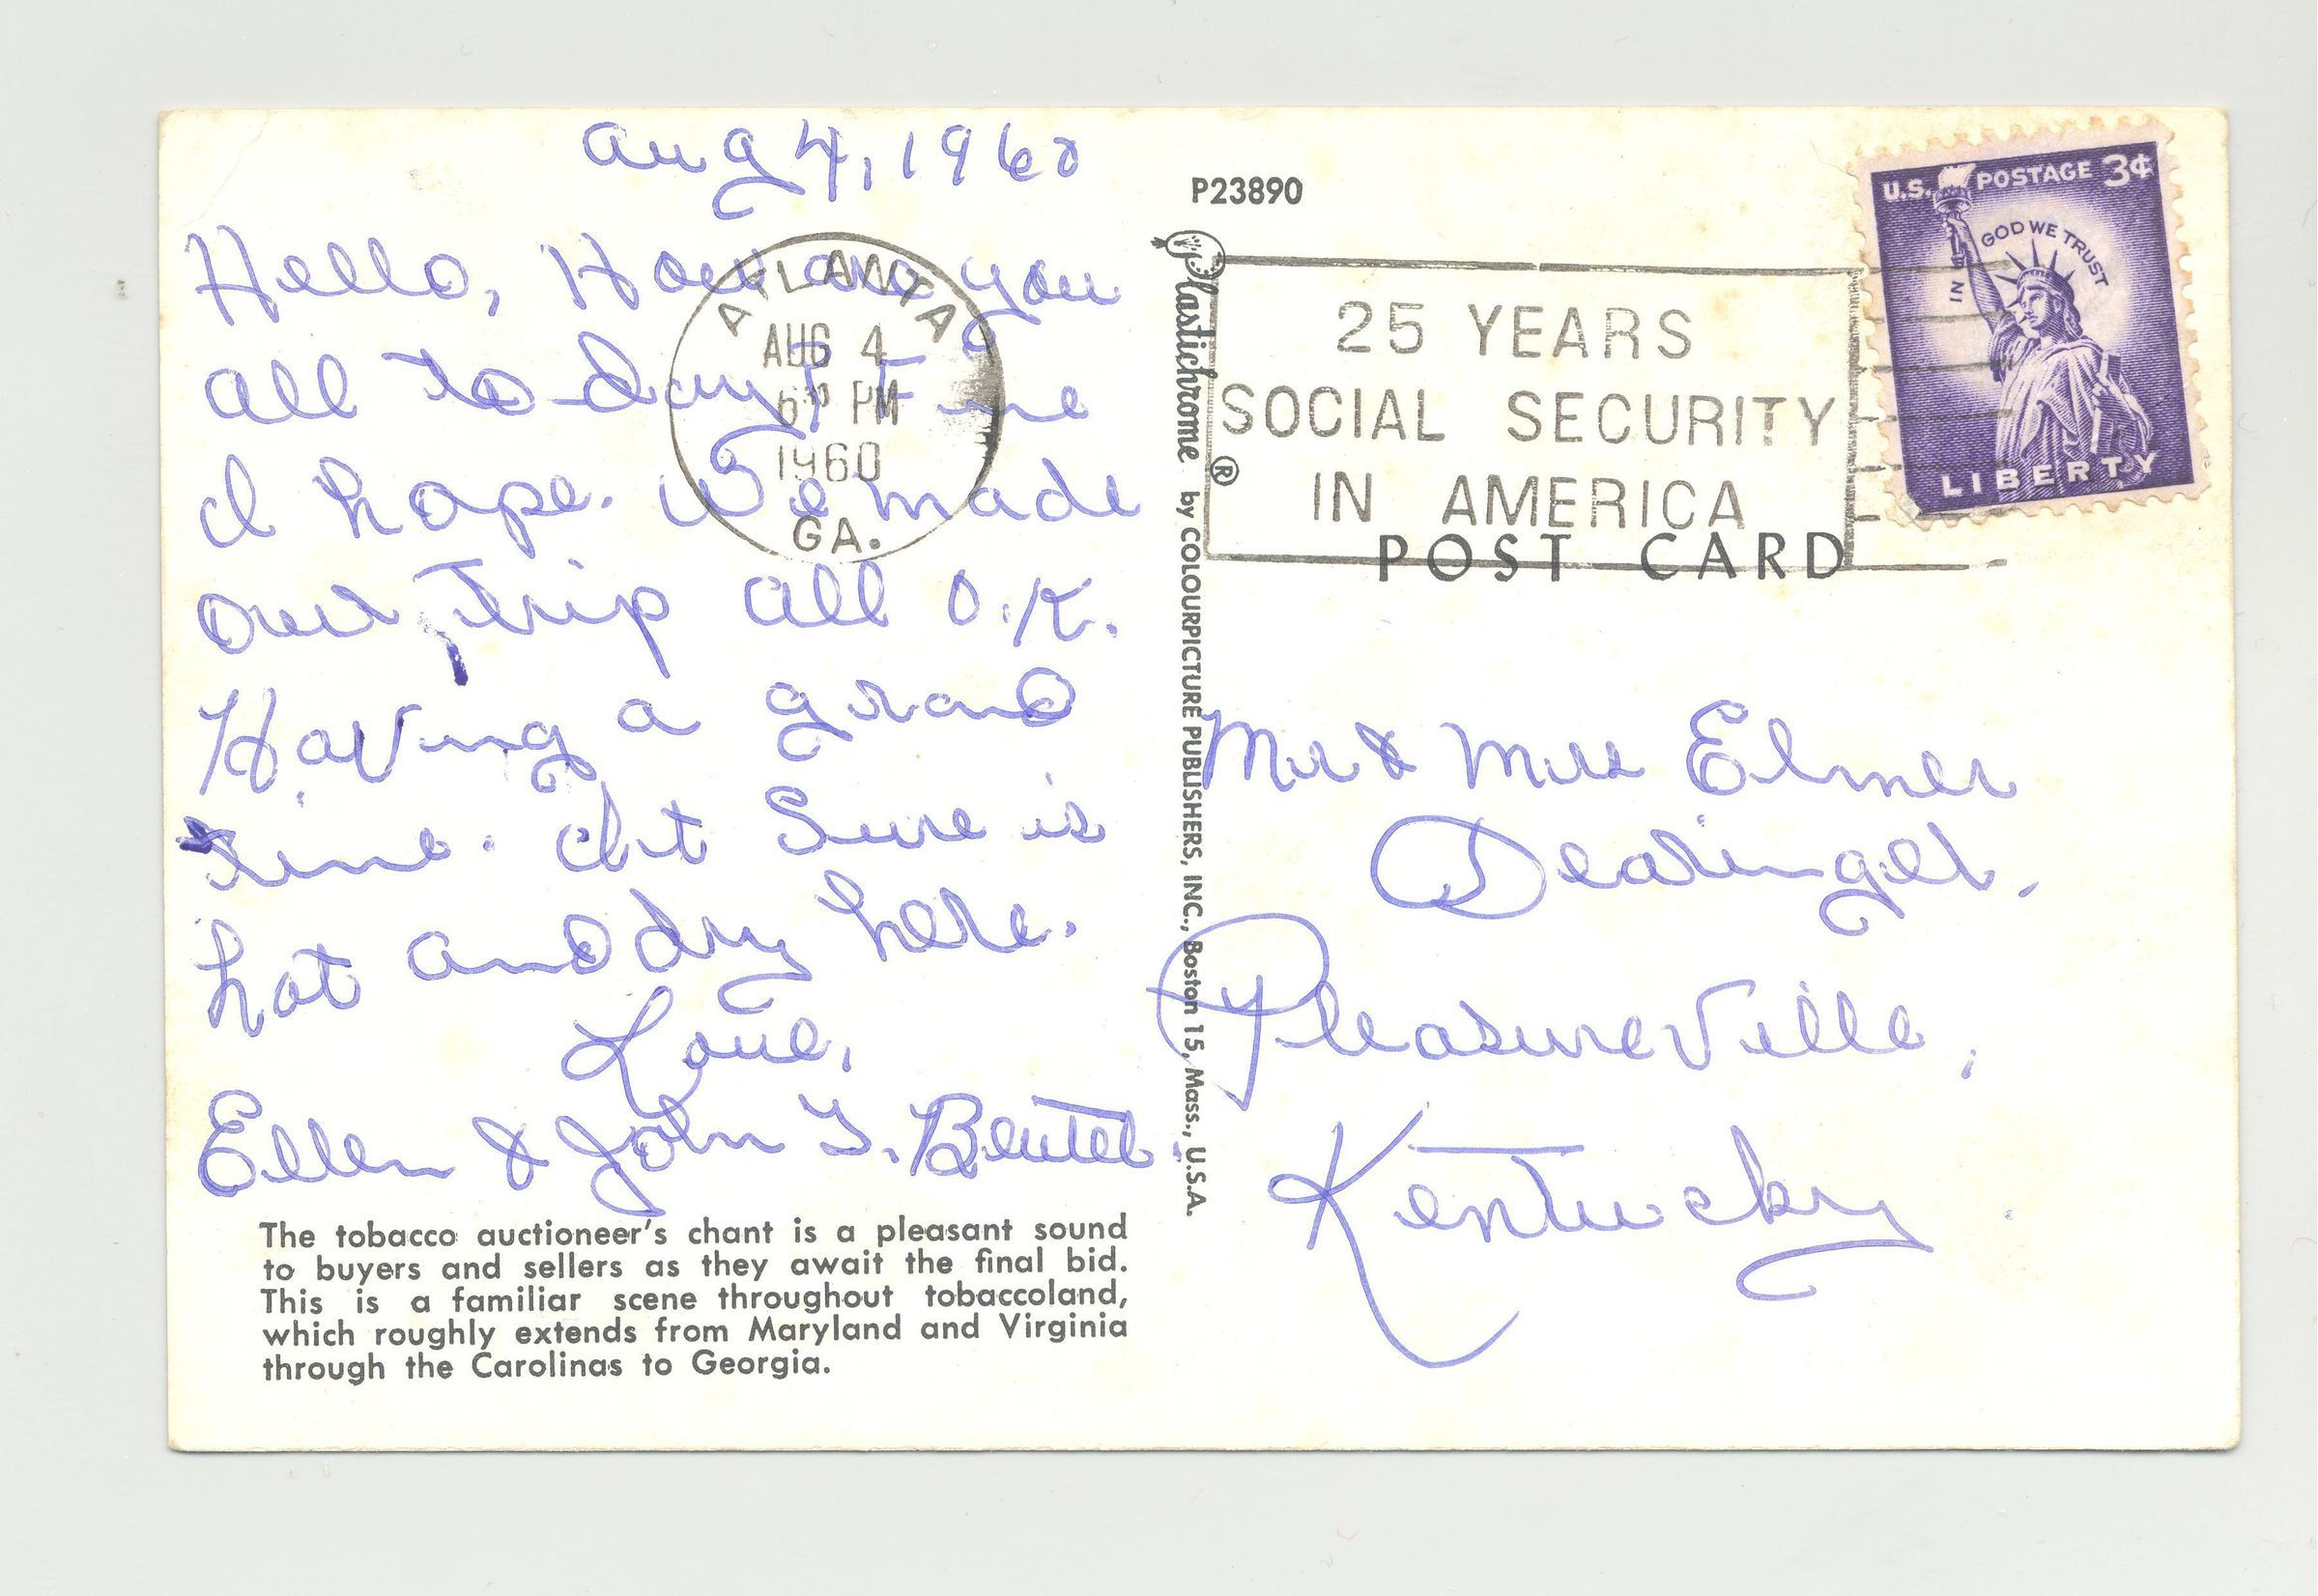 Aug 4, 1960
Hello, How are you
all to-day? Fine
I hope. We made
our trip all O.K.
Having a grand
time. It Sure is
hot and dry here.
Love,
Ellen & John T. Beutel.
The tobacco auctioneer's chant is a pleasant sound
to buyers and sellers as they await the final bid.
This is a familiar scene throughout tobaccoland,
which roughly extends from Maryland and Virginia
through the Carolinas to Georgia.
ATLANTA
AUG 4
PM
1960
GA.
P23890
Plastichrome ® by COLOURPICTURE PUBLISHERS, INC., Boston 15, Mass., U.S.A.
25 YEARS
SOCIAL SECURITY
IN AMERICA
POST CARD
U.S. POSTAGE 3¢
IN GOD WE TRUST
LIBERTY
Mr & Mrs Elmer
Dearinger.
Pleasureville,
Kentucky